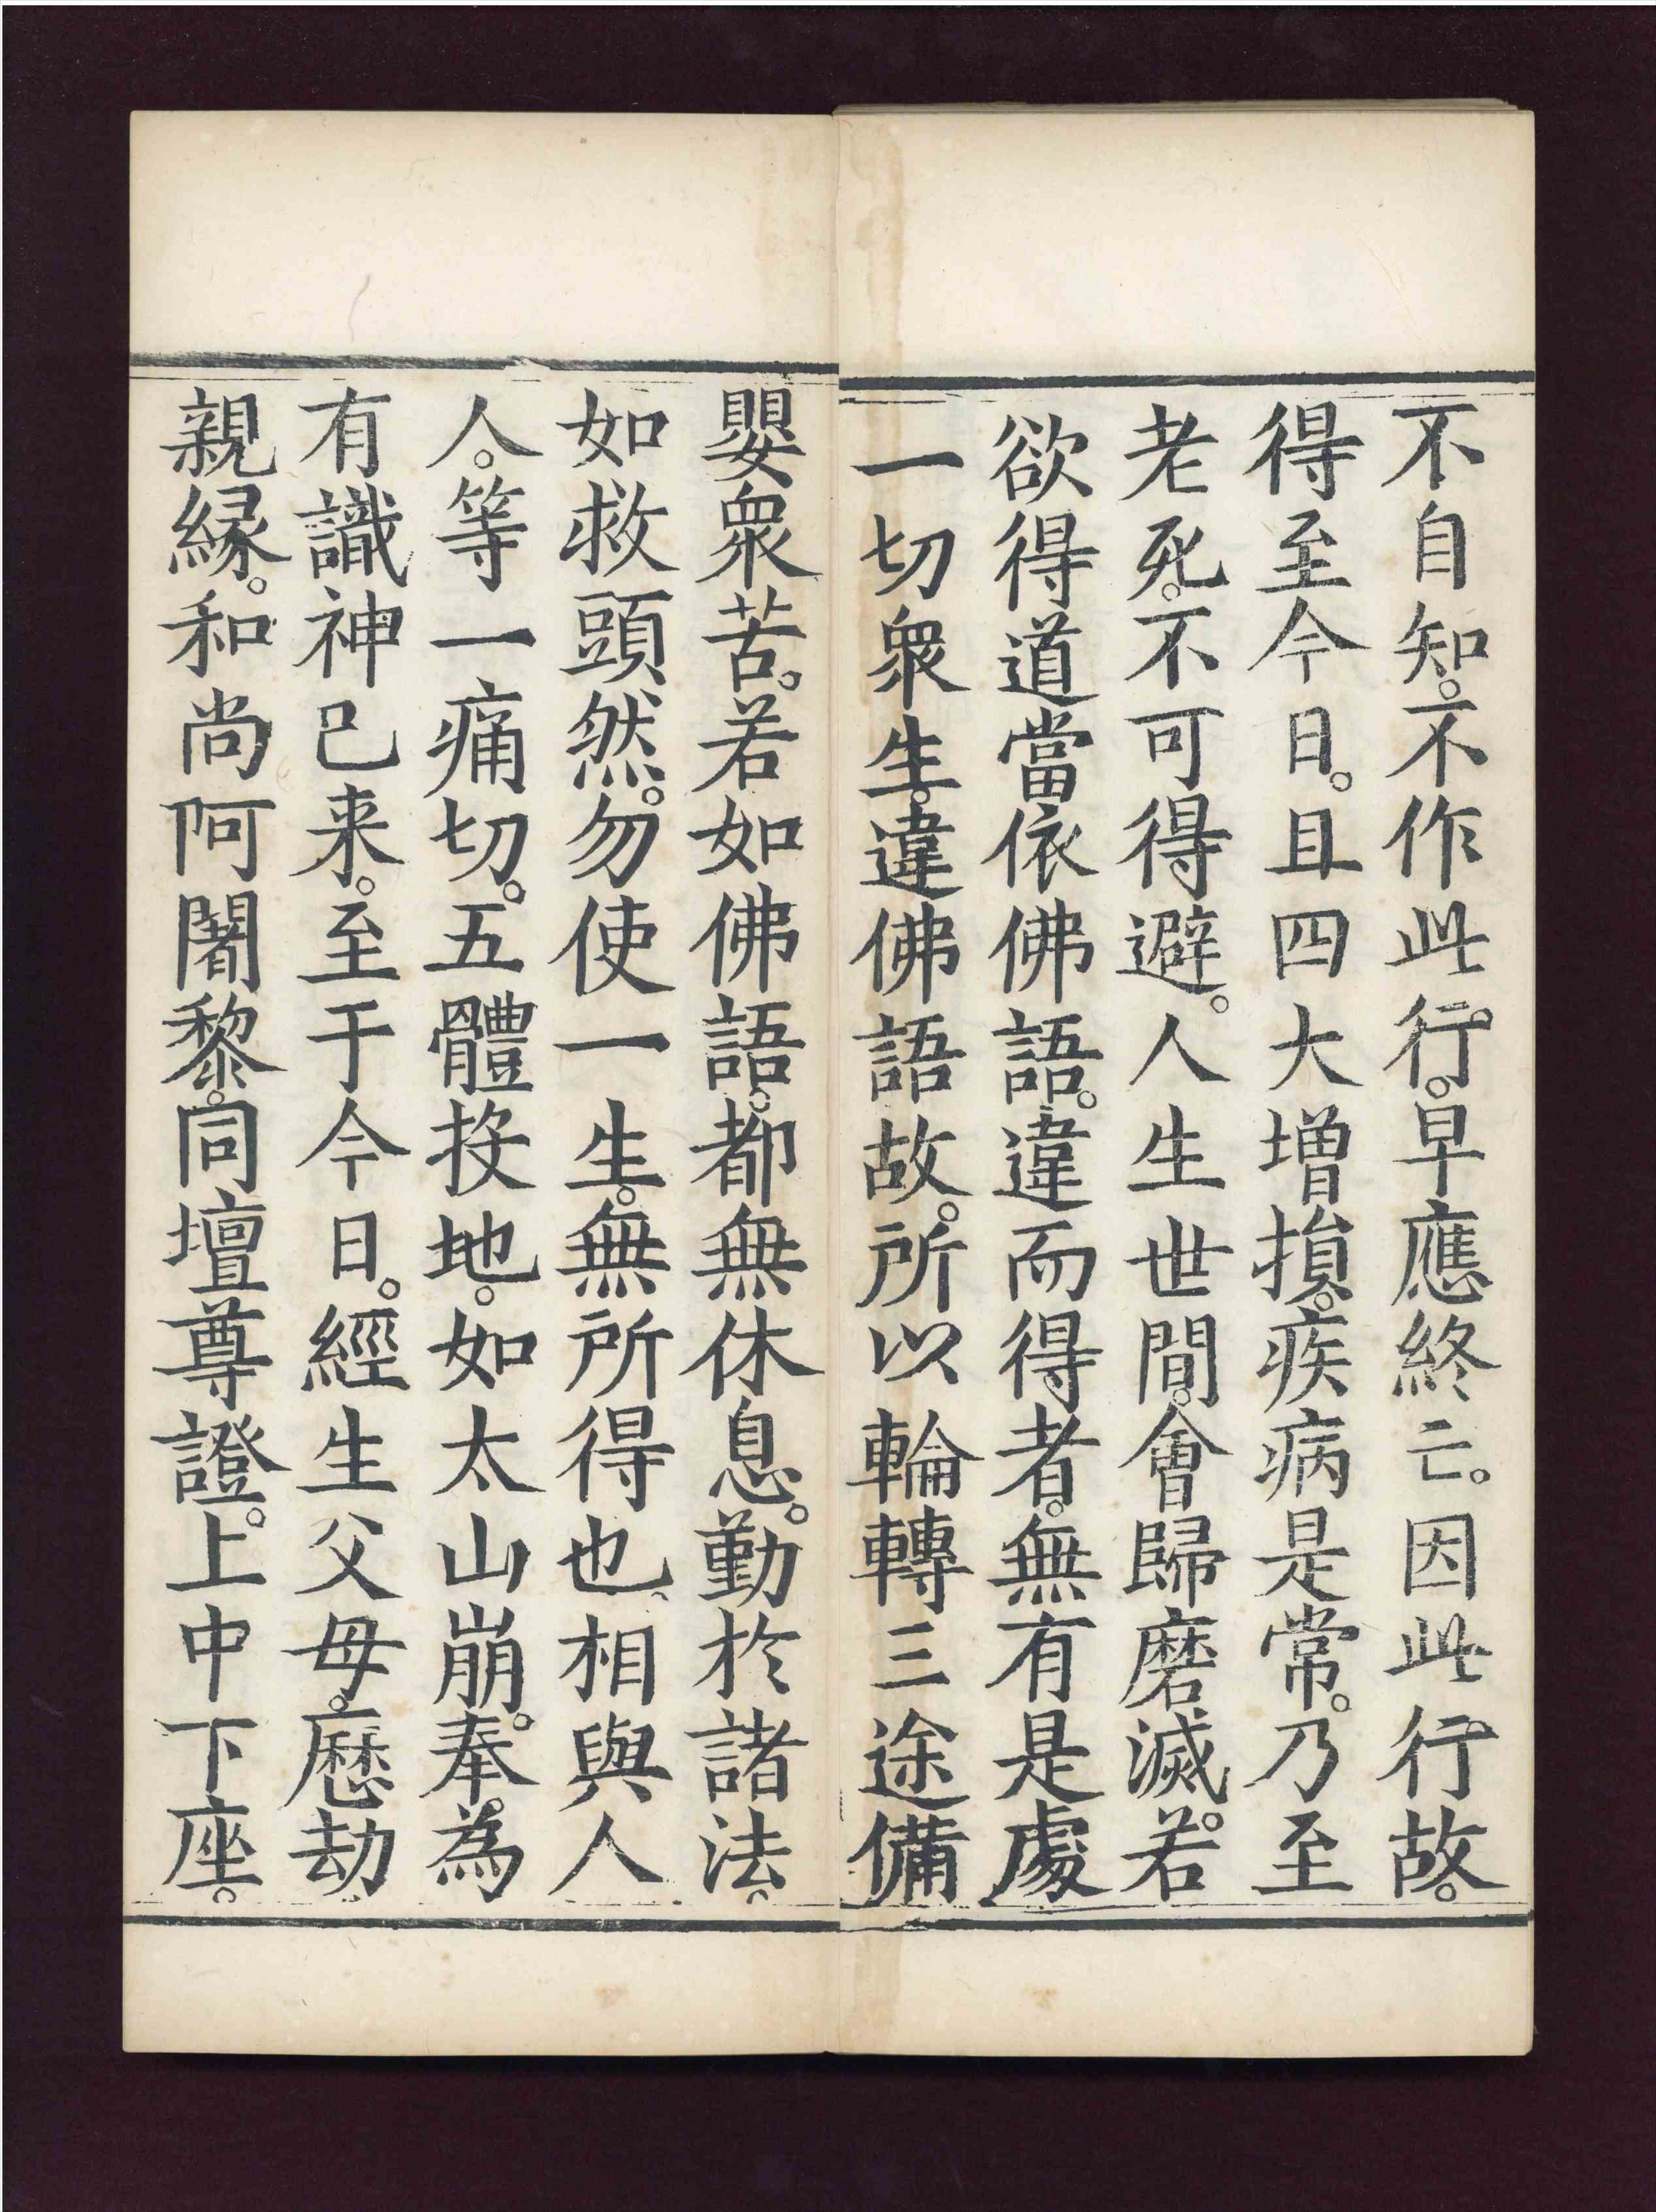 不自知。不作此行。早應終亡。因此行故。
得至今日。且四大增損。疾病是常。乃至
老死。不可得避。人生世間。會歸磨滅。若
欲得道當依佛語。違而得者。無有是處
一切衆生。違佛語故。所以輪轉三途備
嬰衆苦。若如佛語。都無休息。勤於諸法。
如救頭然。勿使一生。無所得也、相與人
人。等一痛切。五體投地。如太山崩。奉。為
有識神已来。至于今日。經生父母。歷劫
親緣。和尚阿闍黎。同壇尊證。上中下座。